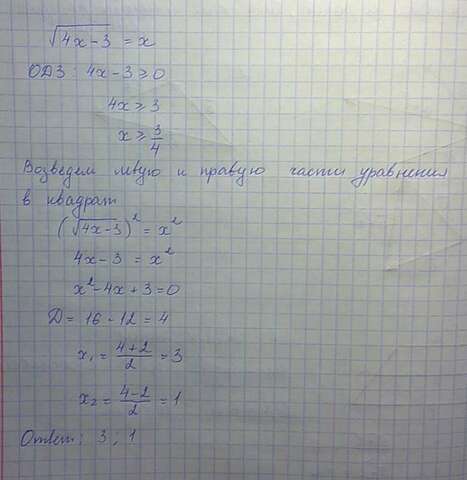 √(4x-3) = x
ОДЗ: 4x-3 ≥ 0
4x ≥ 3
x ≥ 3/4
Возведем левую и правую части уравнения
в квадрат
(√(4x-3))² = x²
4x-3 = x²
x²-4x+3=0
D = 16-12 = 4
x₁ = (4+2)/2 = 3
x₂ = (4-2)/2 = 1
Ответ: 3; 1